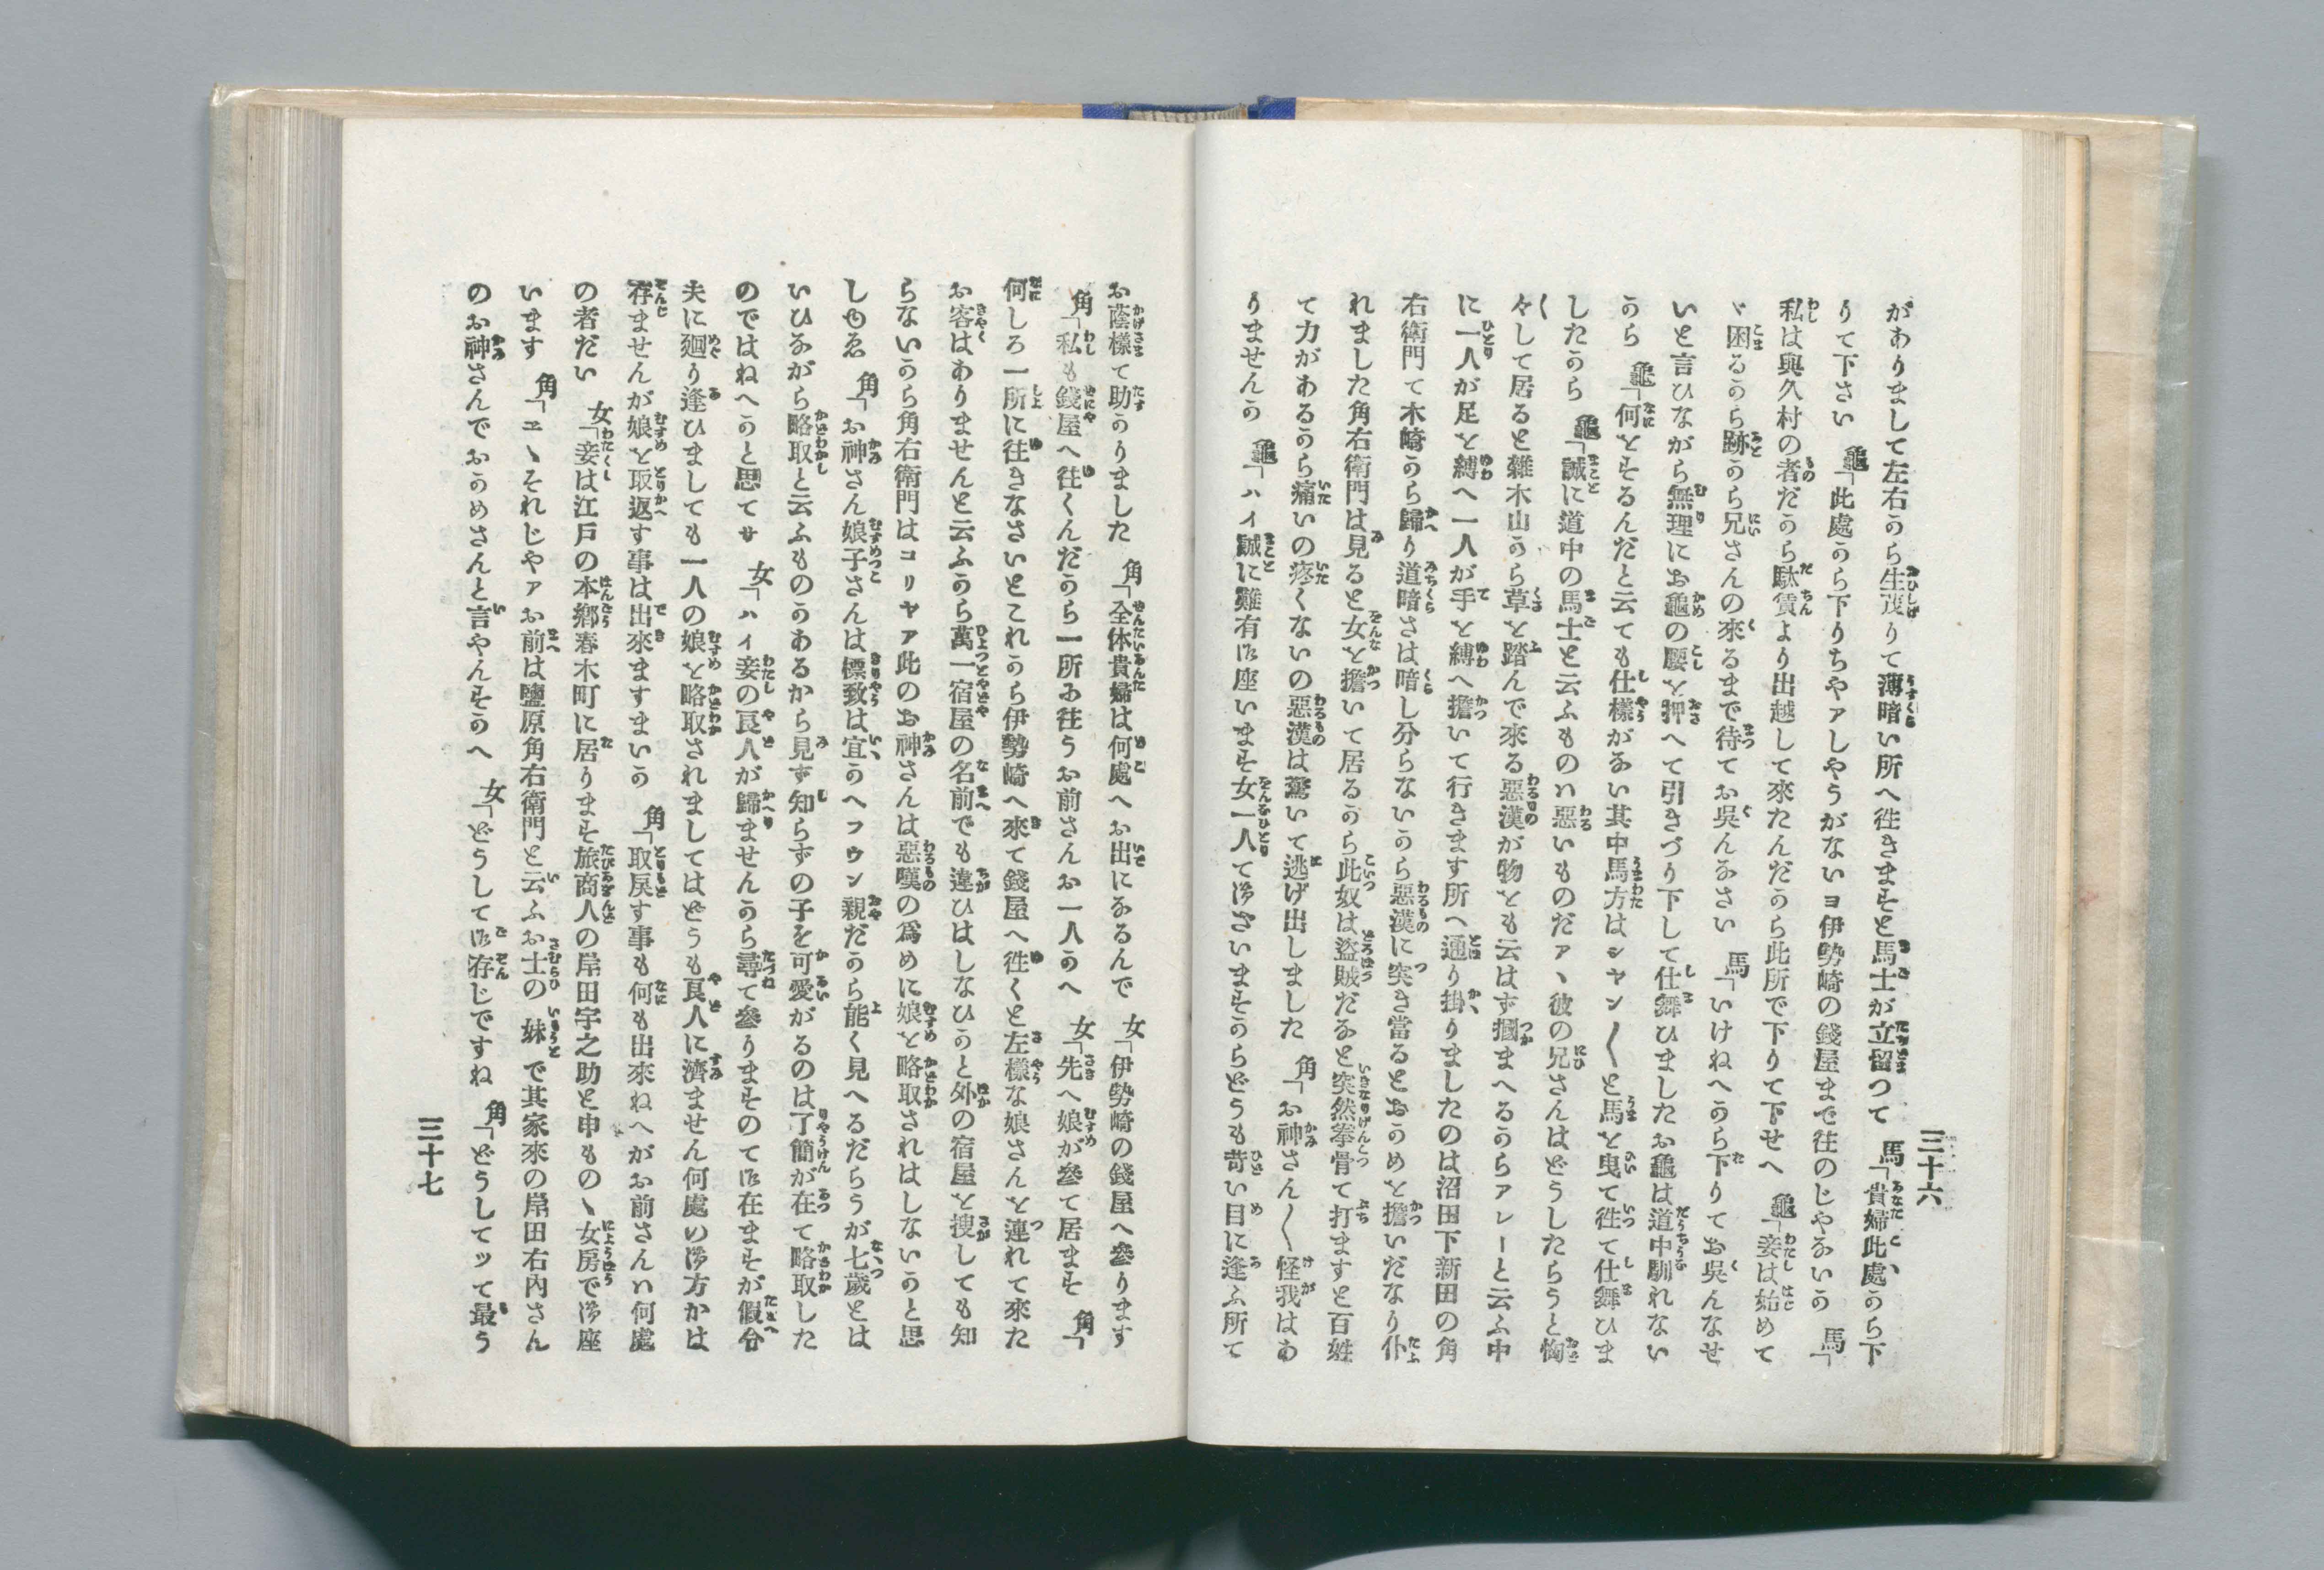 三十六
がありまして左右から生茂りて薄暗い所へ徃きますと馬士が立留つて 馬「貴婦此處から下
りて下さい 龜「此處から下りちやアしやうがないヨ伊勢崎の錢屋まで往のじやないか 馬「
私は與久村の者だから駄賃より出越して來たんだから此所で下りて下せへ 龜「妾は始めて
ゞ困るから跡から兄さんの來るまで待てお呉んなさい 馬「いけねへから下りてお呉んなせ
いと言ひながら無理にお龜の腰を押へて引きづり下して仕舞ひましたお龜は道中馴れない
から 龜「何をするんだと云ても仕樣がない其中馬方はシヤン〳〵と馬を曳て徃つて仕舞ひま
したから 龜「誠に道中の馬士と云ふものハ惡いものだアヽ彼の兄さんはどうしたらうと恟
々して居ると雜木山から草を踏んで來る惡漢が物とも云はず摑まへるからアレーと云ふ中
に一人が足を縛へ一人が手を縛へ擔いて行きます所へ通り掛りましたのは沼田下新田の角
右衛門て木崎から歸り道暗さは暗し分らないから惡漢に突き當るとおかめを擔いだなり仆
れました角右衛門は見ると女を擔いて居るから此奴は盜賊だなと突然拳骨て打ますと百姓
て力があるから痛いの疼くないの惡漢は驚いて逃げ出しました 角「お神さん〳〵怪我はあ
りませんか 龜「ハイ誠に難有ほ座います女一人てほざいますからどうも苛い目に逢ふ所て
お蔭樣て助かりました 角「全体貴婦は何處へお出になるんで 女「伊勢崎の錢屋へ參ります
角「私も錢屋へ徃くんだから一所に往うお前さんお一人かへ 女「先へ娘が參て居ます 角「
何しろ一所に徃きなさいとこれから伊勢崎へ來て錢屋へ徃くと左樣な娘さんを連れて來た
お客はありませんと云ふから萬一宿屋の名前でも違ひはしなひかと外の宿屋を捜しても知
らないから角右衛門はコリヤア此のお神さんは惡嘆の爲めに娘を略取されはしないかと思
しゆゑ 角「お神さん娘子さんは標致は宜かへフウン親だから能く見へるだらうが七歳とは
いひながら略取と云ふものかあるから見ず知らずの子を可愛がるのは了簡が在て略取した
のではねへかと思てサ 女「ハイ妾の良人が歸ませんから尋て參りますのてほ在ますが假令
夫に廻り逢ひましても一人の娘を略取されましてはどうも良人に濟ません何處のほ方かは
存ませんが娘を取返す事は出來ますまいか 角「取戻す事も何も出來ねへがお前さんハ何處
の者だい 女「妾は江戸の本鄕春木町に居ります旅商人の岸田宇之助と申ものヽ女房でほ座
います 角「エヽそれじやアお前は鹽原角右衛門と云ふお士の妹で其家來の岸田右內さん
のお神さんでおかめさんと言やんすかへ 女「どうしてほ存じですね 角「どうしてツて最う
三十七